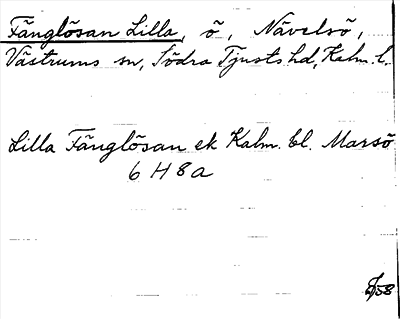 Fånglösan Lilla, ö, Nävelsö,
Västrums sn, Södra Tjusts hd, Kalm. l.
Lilla Fånglösan ek Kalm. bl. Marsö
6 H 8a